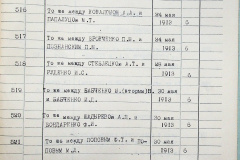 516 То же между КОВАЛЕВЫМ А.А. и 24 мая
ПАПАЛУЦА Ф.Т. 1913 6
517 То же между 24 мая
П.М. 1913 6
518 То же между СТЕБЛЕЦОМ А.Т. и 28 мая
РАДЧЕНКО В.С. 1913 6
519 То же между БАБЧЕНКО М.(вторым)В. 30 мая
и БАБЧЕНКО А.Д. 1913 6
520 То же между А.П. и 30 мая
БОНДАРЕНКО Ф.Д. 1913 6
521 То же между ПОПОВЫМ Ф.Т. и 30 мая
1913 6